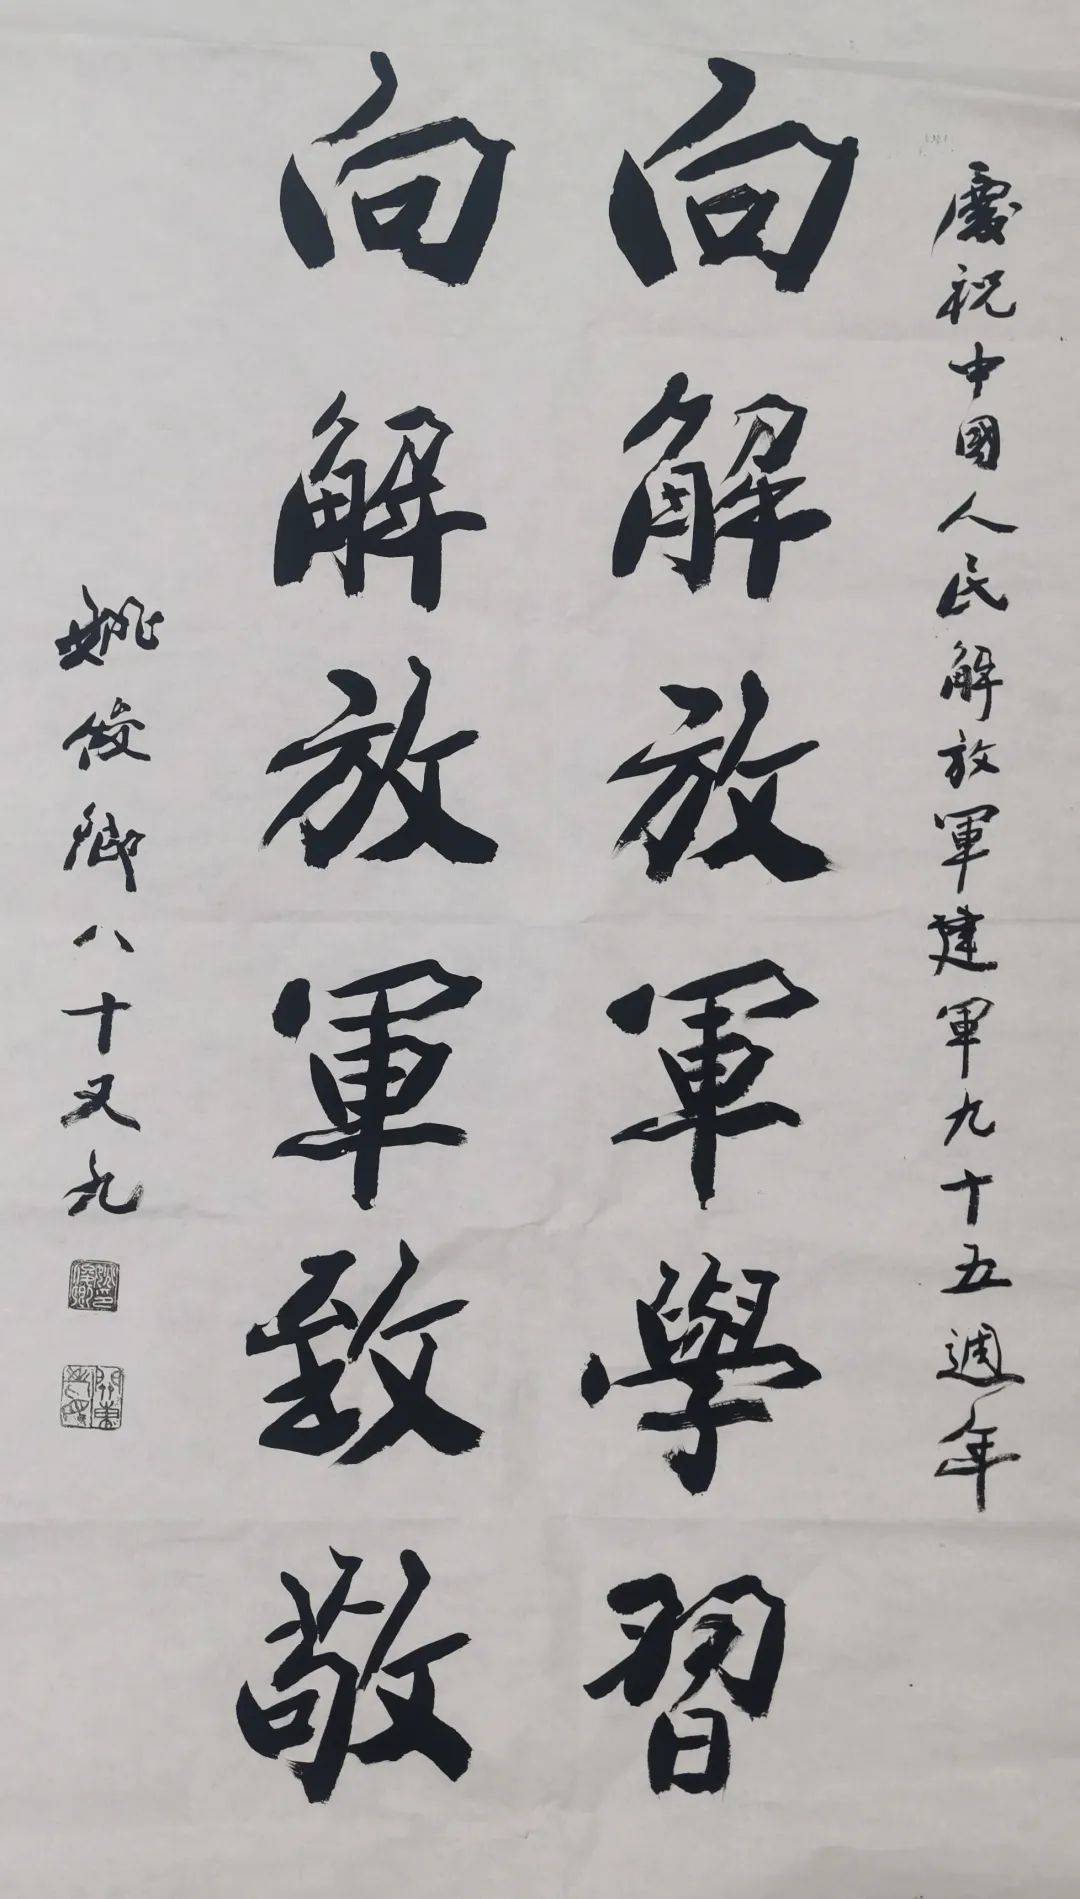 慶祝中國人民解放軍建軍九十五週年
向解放軍學習
向解放軍致敬
姚俊卿八十又九